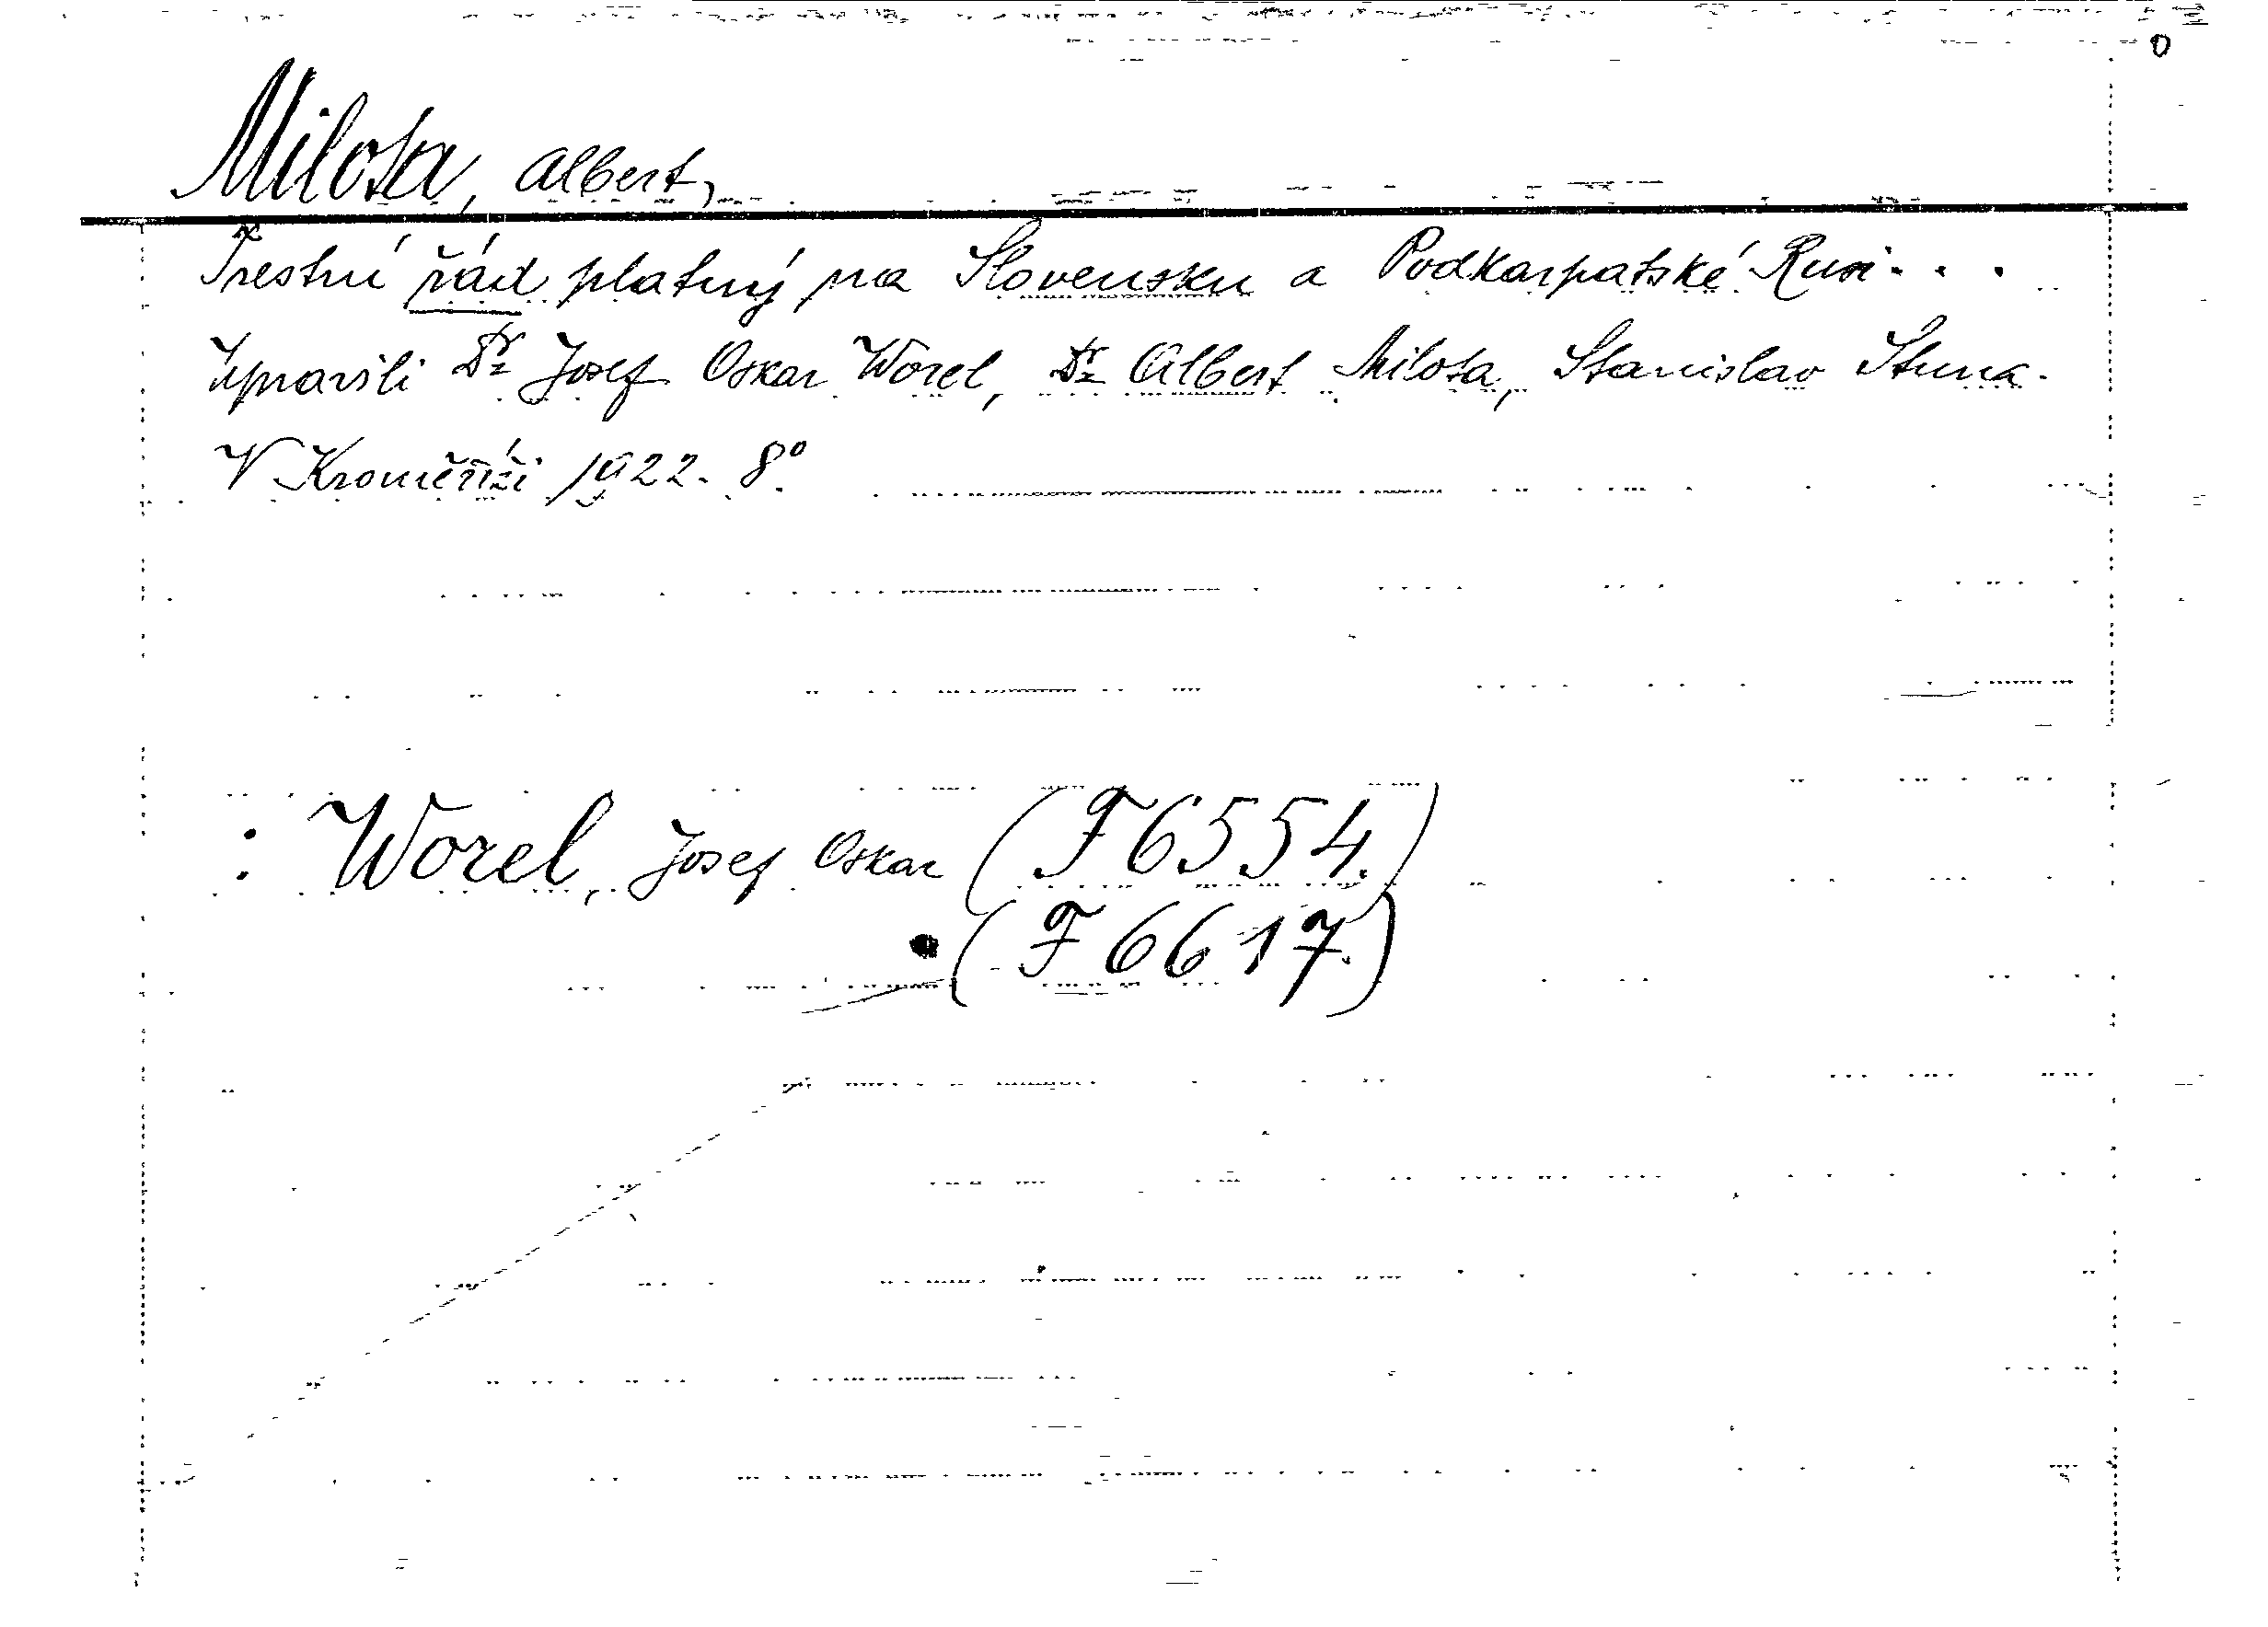 Milota, Albert,
Trestní řád platný na Slovensku a Podkarpatské Rusi...
Upravili Dr Josef Oskar Worel, Dr Albert Milota, Stanislav
V Kroměříži 1922. 8°
: Worel, Josef Oskar (F 6554.)
(F 6617.)